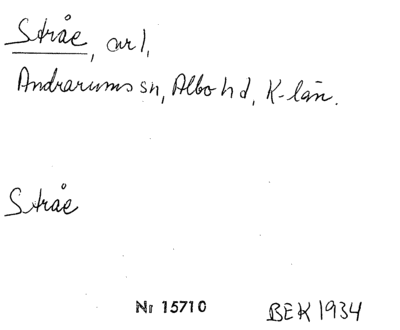 Stråe, arl,
Andrarums sn, Albo hd, K-län.
Stråe
Nr 15710 BEK 1934